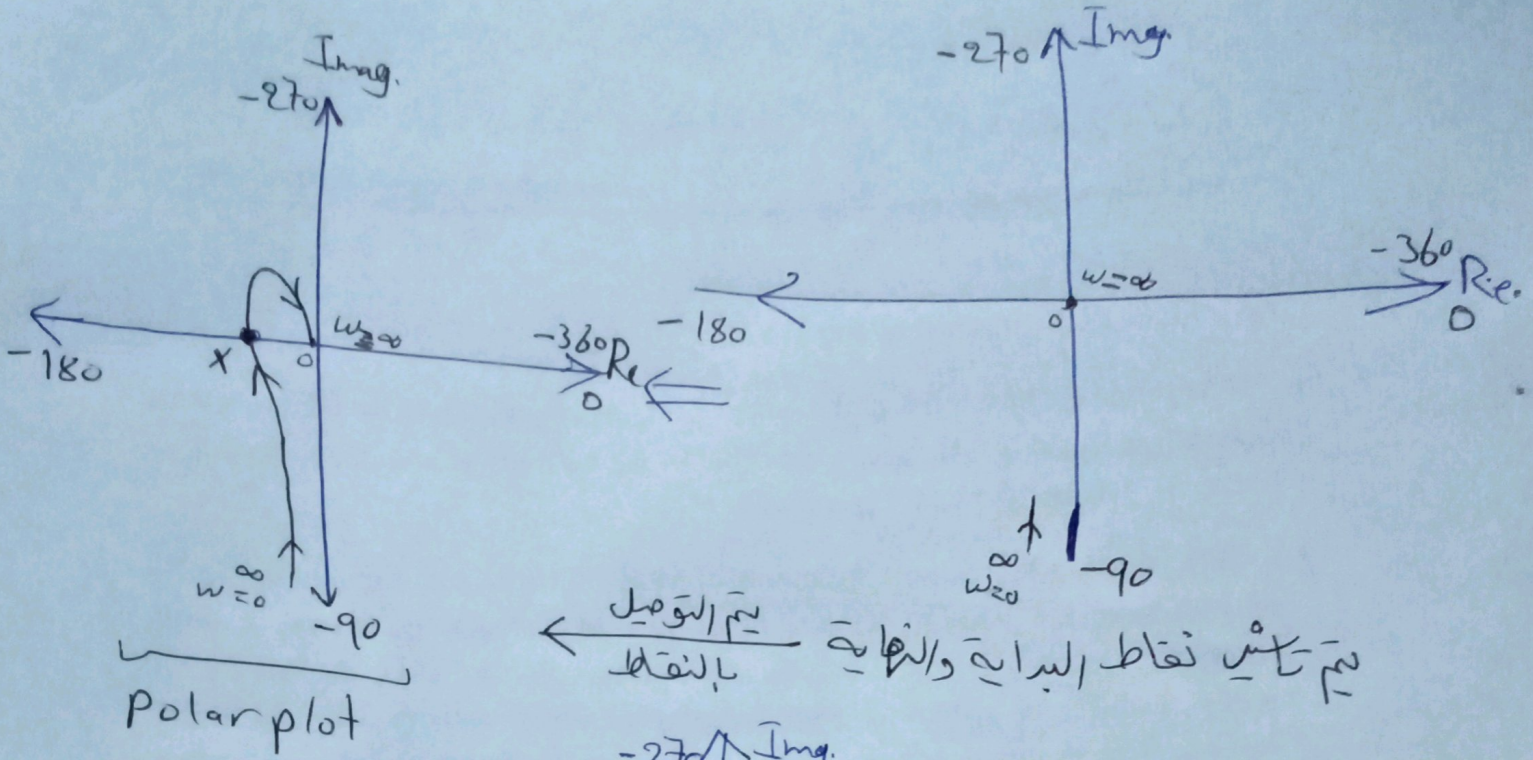 Imag.
-270
-180
X
0
w=∞
-360
Re
0
∞
w=0
-90
Polar plot
-270
Img.
-180
0
w=∞
-360
Re.
0
∞
w=0
-90
يتم تأشير نقاط البداية والنهاية
يتم التوصيل
بالنقاط
-270
Img.